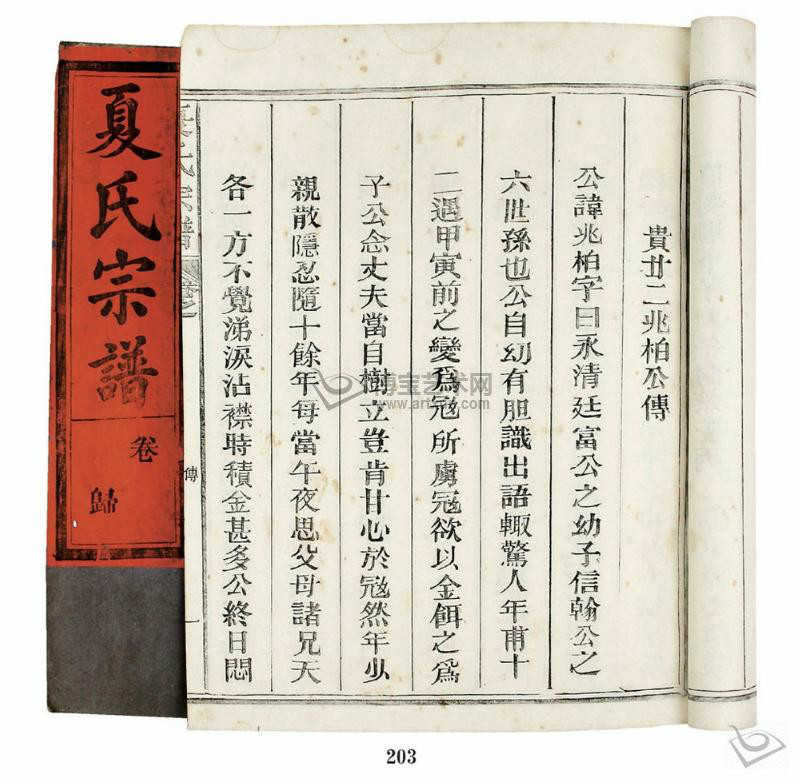 貴廿二兆柏公傳
公諱兆柏字曰永清廷富公之幼子信翰公之
六世孫也公自幼有胆識出語輙驚人年甫十
二遇甲寅前之變爲冦所虜冦欲以金餌之爲
子公念丈夫當自樹立豈肯甘心於冦然年少
親散隱忍隨十餘年每當午夜思父母諸兄天
各一方不覺涕淚沾襟時積金甚多公終日悶
夏氏宗譜
傳
一
夏氏宗譜
卷
歸
博宝艺术网
203